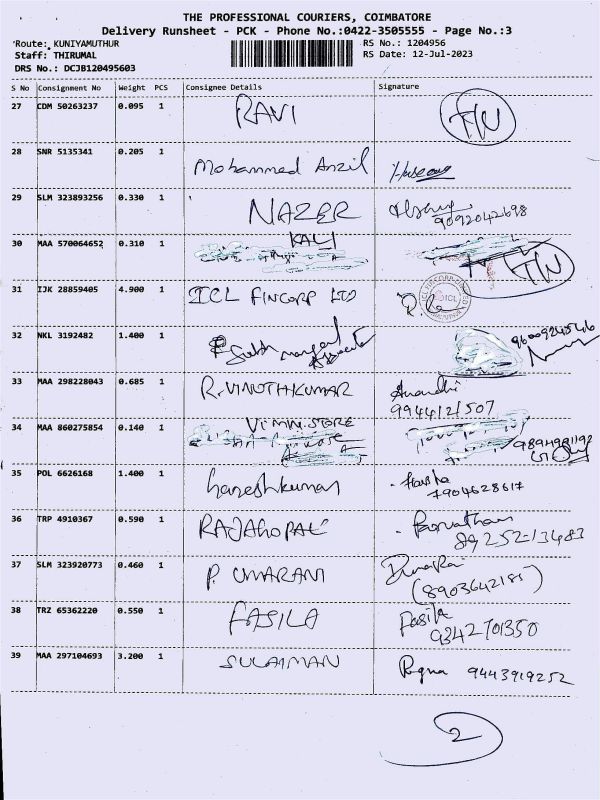 THE PROFESSIONAL COURIERS, COIMBATORE
Delivery Runsheet - PCK - Phone No.:0422-3505555 - Page No.:3
Route: KUNIYAMUTHUR
RS No.: 1204956
Staff: THIRUMAL
RS Date: 12-Jul-2023
DRS No.: DCJB120495603
S No Consignment No Weight PCS Consignee Details Signature
27 CDM 50263237 0.095 1 RAVI
28 SNR 5135341 0.205 1 Mohammed Anzil
29 SLM 323893256 0.330 1 NAZER
9092042698
30 MAA 570064652 0.310 1 KALI
31 IJK 28859405 4.900 1 ICL FINCORP LTD
ICL
32 NKL 3192482 1.400 1
9600924546
33 MAA 298228043 0.685 1 R.VINOTHKUMAR Anandhi
9944121507
34 MAA 860275854 0.140 1 STORE
35 POL 6626168 1.400 1 Ganeshkumar
7904628617
36 TRP 4910367 0.590 1 RAJAGOPAL
89252-13483
37 SLM 323920773 0.460 1 P. UMARANI
(8903642185)
38 TRZ 65362220 0.550 1 FASILA Fasila
9342701350
39 MAA 297104693 3.200 1 SULAIMAN
9443919252
2